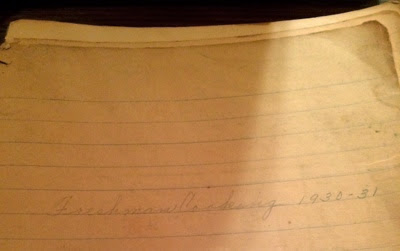 Freshman Cooking 1930-31